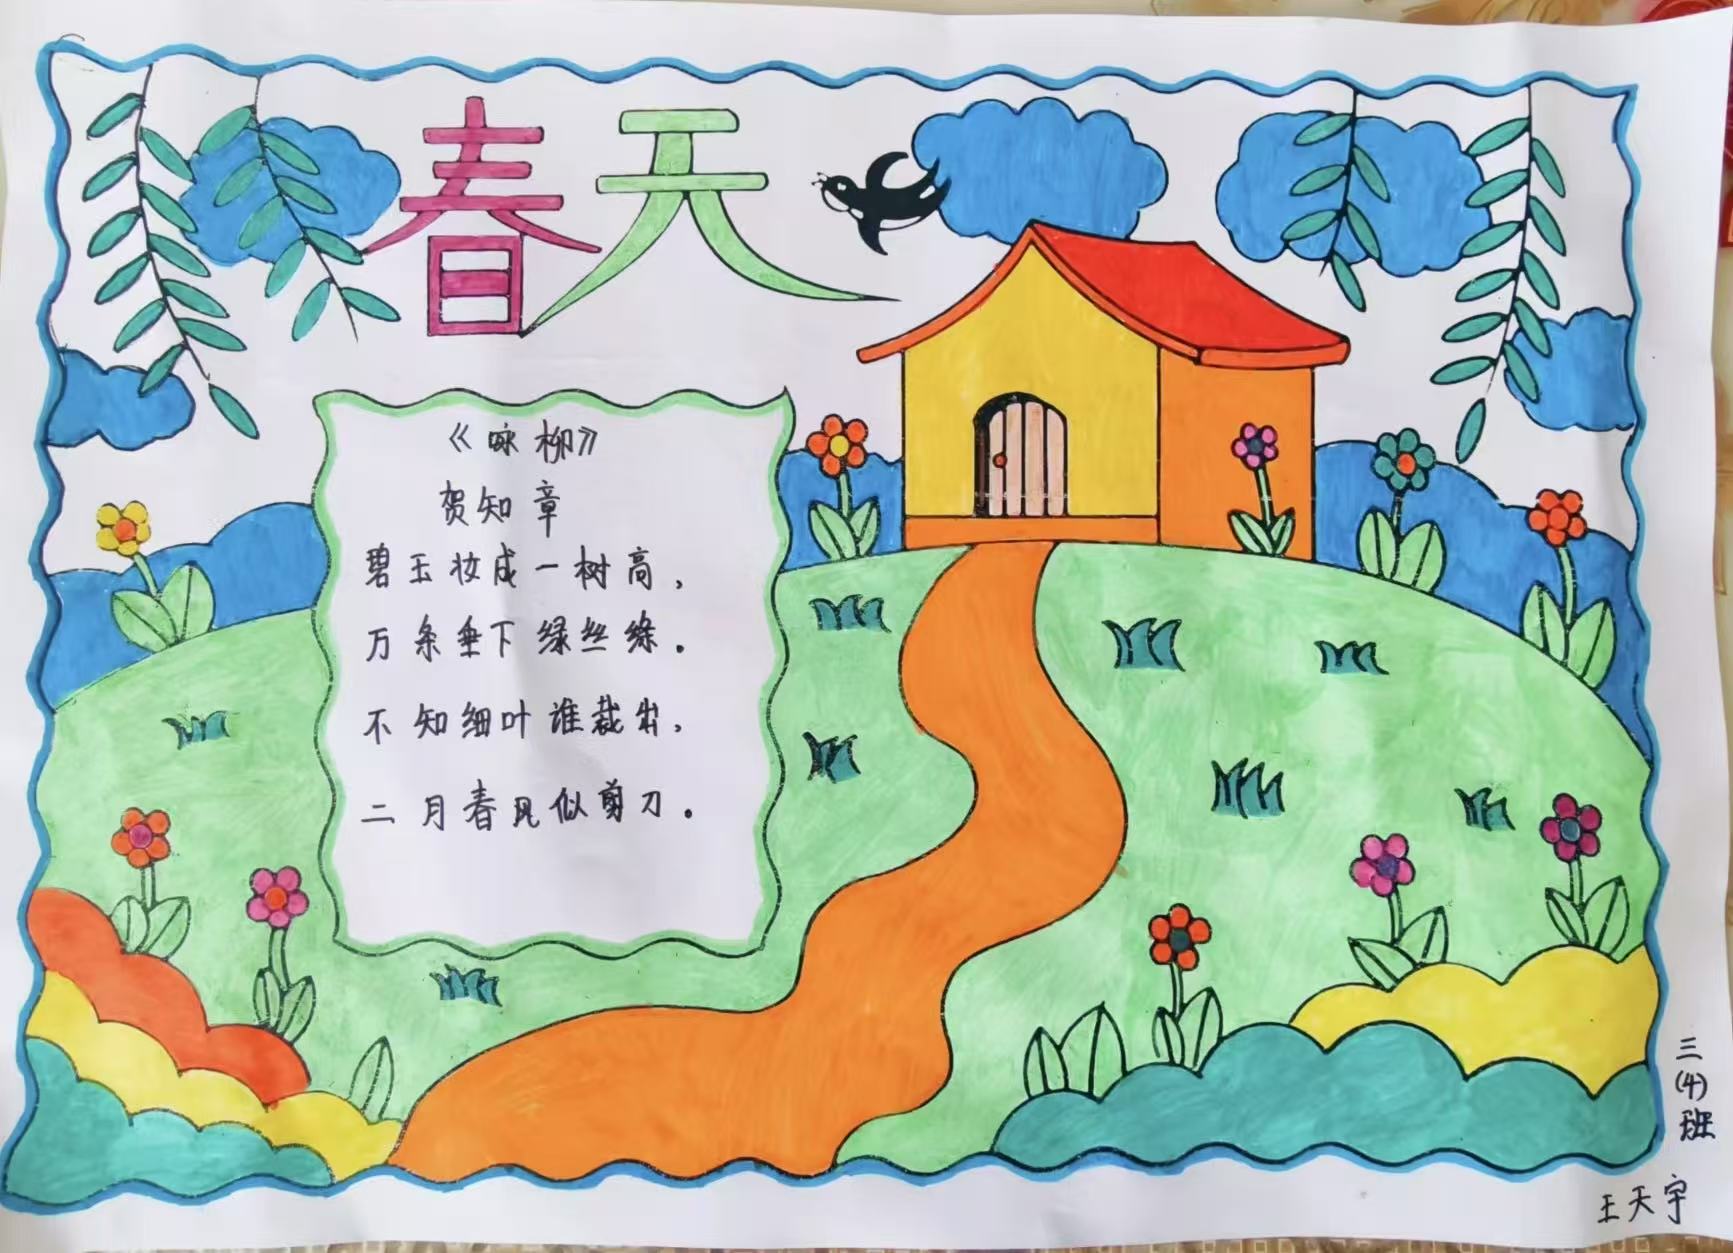 春天
《咏柳》
贺知章
碧玉妆成一树高，
万条垂下绿丝绦。
不知细叶谁裁出，
二月春风似剪刀。
三(4)班
王天宇